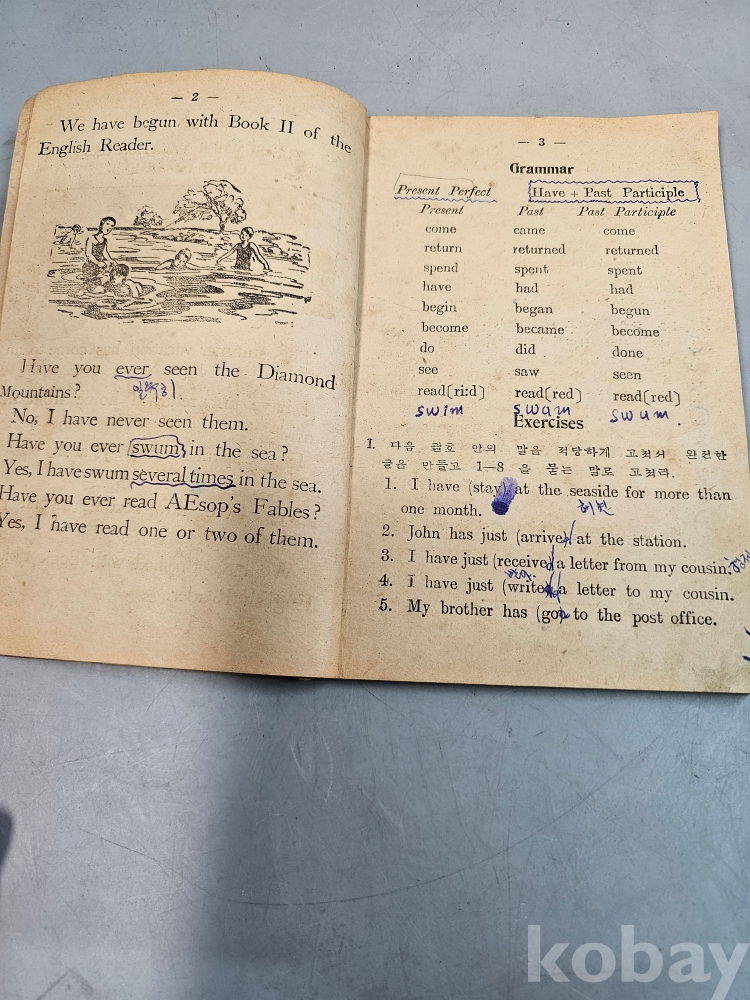 — 2 —
We have begun with Book II of the
English Reader.
Have you ever seen the Diamond
Mountains?
No, I have never seen them.
Have you ever swum in the sea?
Yes, I have swum several times in the sea.
Have you ever read AEsop's Fables?
Yes, I have read one or two of them.
— 3 —
Grammar
Present Perfect Have + Past Participle
Present Past Past Participle
come came come
return returned returned
spend spent spent
have had had
begin began begun
become became become
do did done
see saw seen
read(ri:d) read(red) read(red)
swim swam swum
Exercises
I. 다음 괄호 안의 말을 적당하게 고쳐서 완전한
글을 만들고 1—8 을 묻는 말로 고쳐라.
1. I have (stay) at the seaside for more than
one month. 해변
2. John has just (arrive) at the station.
3. I have just (receive) a letter from my cousin.
4. I have just (write) a letter to my cousin.
5. My brother has (go) to the post office.
kobay